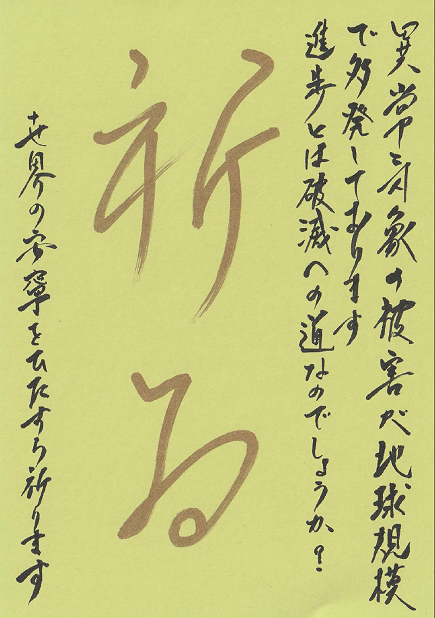 異常気象の被害が地球規模
で多発しております
進歩とは破滅への道なのでしょうか？
祈る
世界の安寧をひたすら祈ります